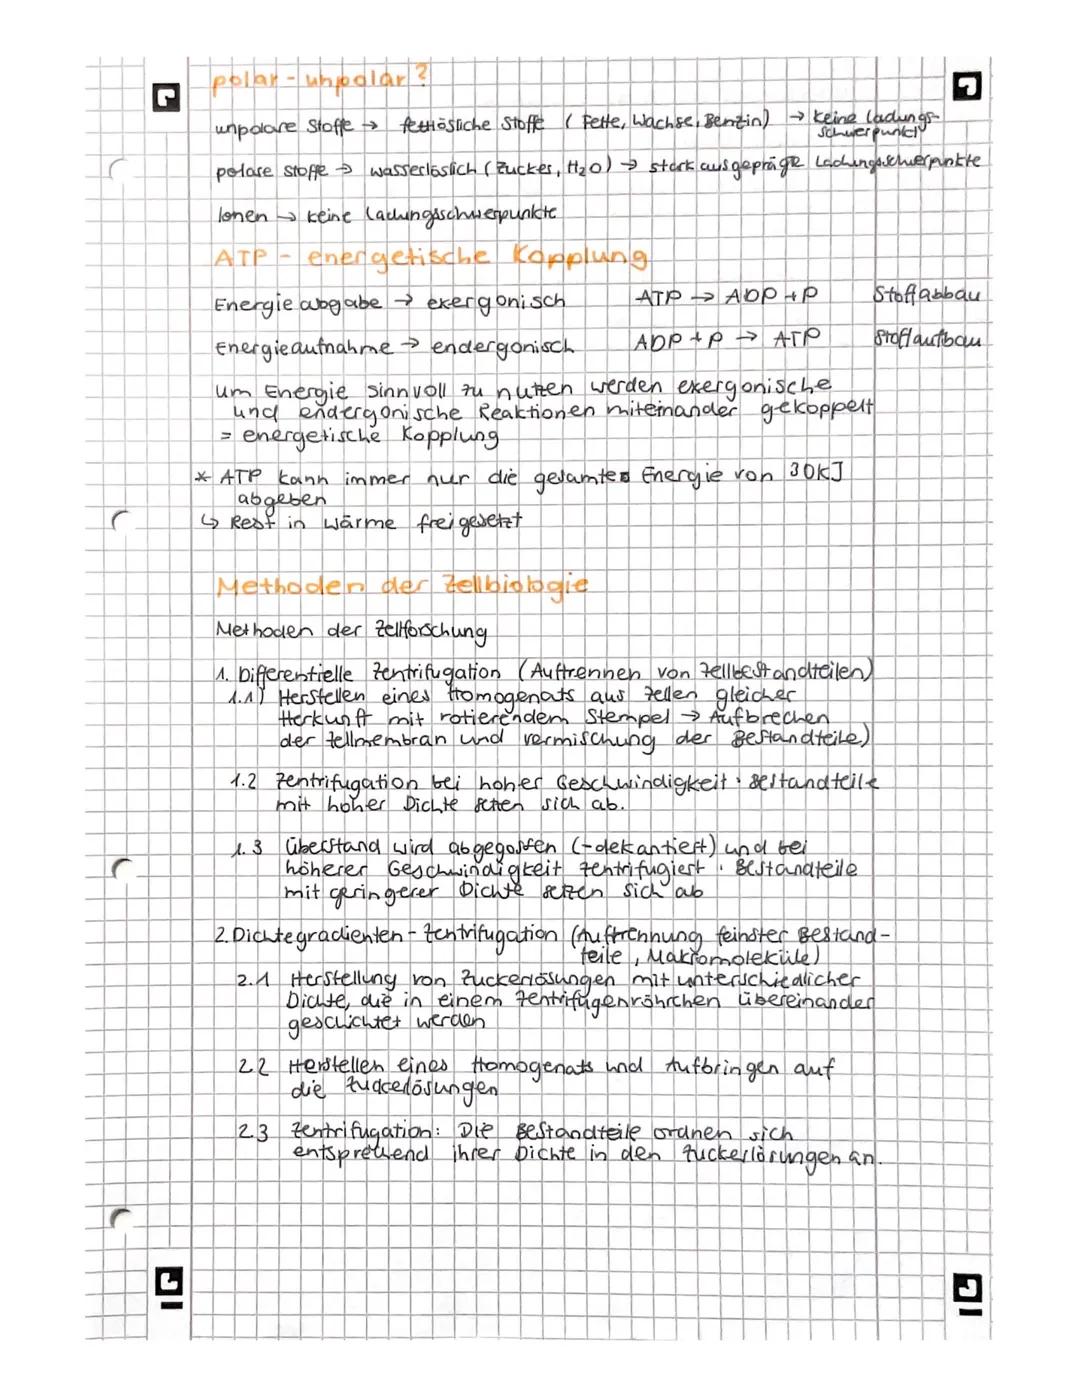 polar - unpolar?
unpolare Stoffe → fettlösliche Stoffe (Fette, Wachse, Benzin) → keine Ladungs-
schwerpunkt
polare Stoffe → wasserlöslich (Zucker, H₂O) → stark ausgeprägte Ladungsschwerpunkte
Ionen → keine Ladungsschwerpunkte
ATP - energetische Kopplung
Energieabgabe → exergonisch ATP → ADP + P Stoffabbau
Energieaufnahme → endergonisch ADP + P → ATP Stoffaufbau
um Energie sinnvoll zu nutzen werden exergonische
und endergonische Reaktionen miteinander gekoppelt
= energetische Kopplung
* ATP kann immer nur die gesamte Energie von 30KJ
abgeben
↳ Rest in Wärme freigesetzt
Methoden der Zellbiologie
Methoden der Zellforschung
1. Differentielle Zentrifugation (Auftrennen von Zellbestandteilen)
1.1) Herstellen eines Homogenats aus Zellen gleicher
Herkunft mit rotierendem Stempel → Aufbrechen
der Zellmembran und vermischung der Bestandteile)
1.2 Zentrifugation bei hoher Geschwindigkeit: Bestandteile
mit hoher Dichte setzen sich ab.
1.3 Überstand wird abgegossen (-dekantiert) und bei
höherer Geschwindigkeit zentrifugiert: Bestandteile
mit geringerer Dichte setzen sich ab
2. Dichtegradienten-Zentrifugation (Auftrennung feinster Bestand-
teile, Makromoleküle)
2.1 Herstellung von Zuckerlösungen mit unterschiedlicher
Dichte, die in einem Zentrifugenröhrchen übereinander
geschichtet werden
2.2 Herstellen eines Homogenats und Aufbringen auf
die Zuckerlösungen
2.3 Zentrifugation: Die Bestandteile ordnen sich
entsprechend ihrer Dichte in den Zuckerlösungen an.